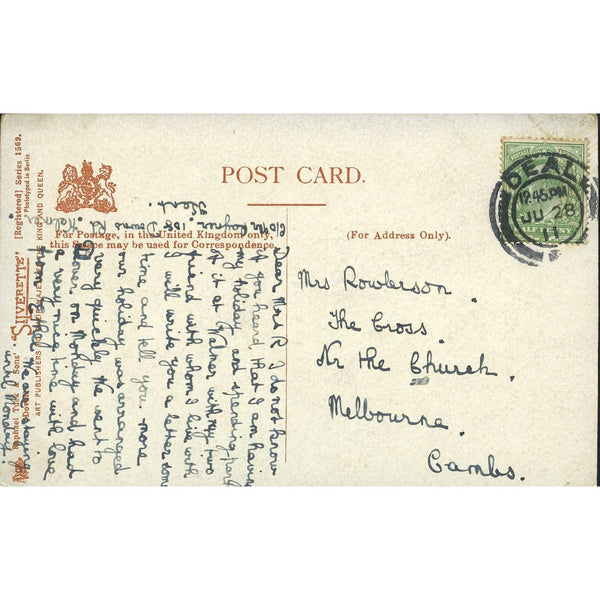 POST CARD.
For Postage, in the United Kingdom only,
this Space may be used for Correspondence.
(For Address Only).
Raphael Tuck & Sons' "SILVERETTE" [Registered] Series 1569.
Phototyped in Berlin
ART PUBLISHERS TO THEIR MAJESTIES THE KING AND QUEEN.
DEAL
12.45 PM
JU 28
11
HALF PENNY
Mrs Rowlerson.
The Cross.
Nr the Church.
Melbourne.
Cambs.
108 Downs Rd. Walmer.
Kent.
Dear Mrs R I do not know
if you heard, that I am having
my holiday, and spending part
of it at Walmer with my two
friend with whom I live with
I will write you a letter some
time and tell you. more
our holiday was arranged
very quickly. We went to
Dover on Monday and had
a very nice time with love
from
until Monday.